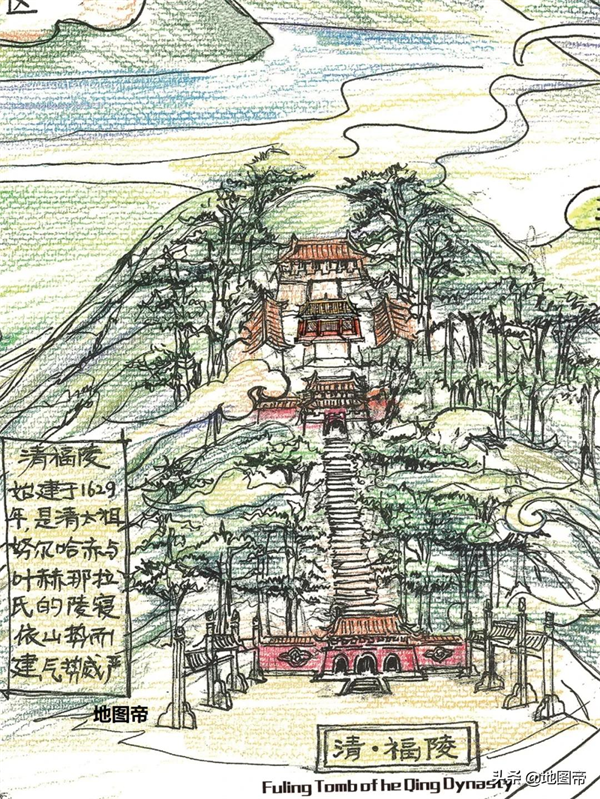 区
清福陵
始建于1629
年,是清太祖
努尔哈赤与
叶赫那拉
氏的陵寝
依山势而
建气势威严
地图帝
清·福陵
头条 @地图帝
Fuling Tomb of he Qing Dynasty